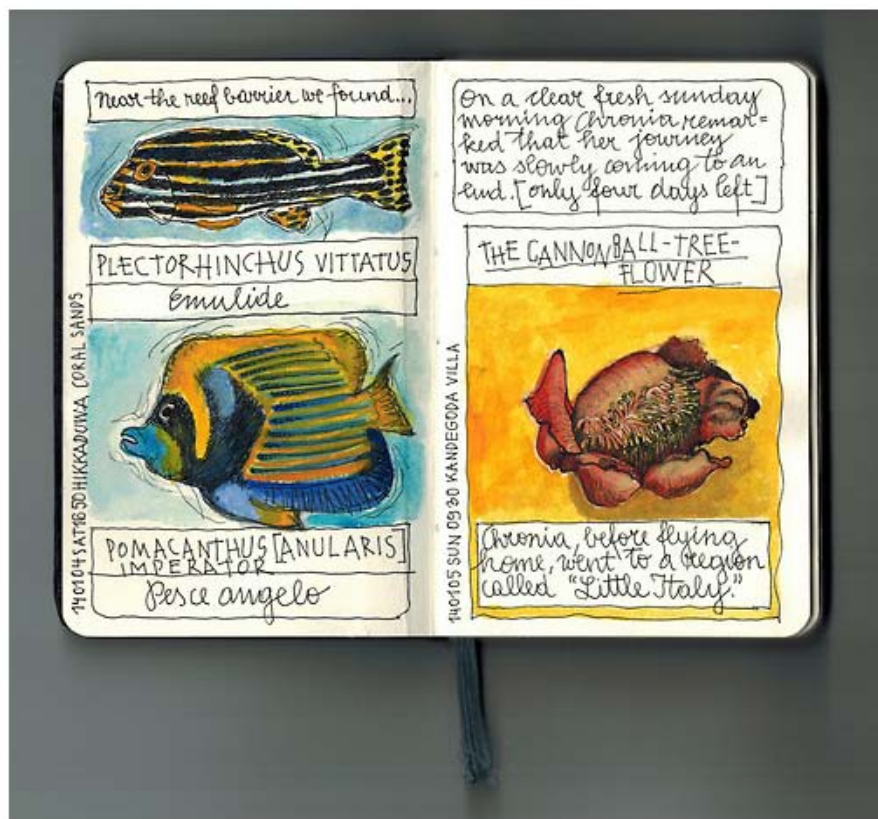 Near the reef barrier we found...
PLECTORHINCHUS VITTATUS
Emulide
POMACANTHUS [ANULARIS]
IMPERATOR
Pesce angelo
140104 SAT 16.50 HIKKADUWA CORAL SANDS
On a clear fresh sunday
morning Chronia remar=
ked that her journey
was slowly coming to an
end. [only four days left]
THE CANNONBALL-TREE-
FLOWER
Chronia, before flying
home, went to a region
called "Little Italy."
140105 SUN 09.30 KANDEGODA VILLA